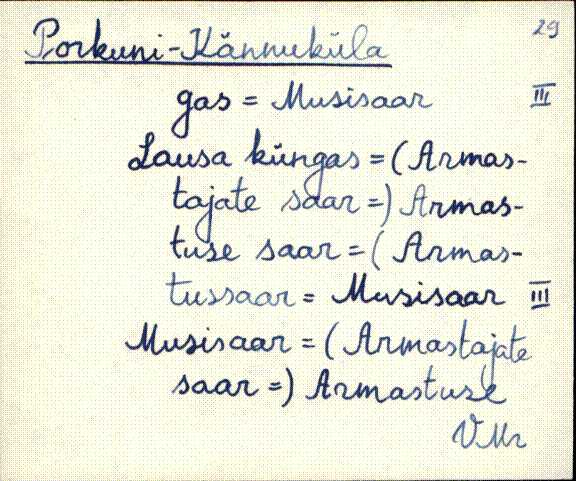 29
Porkuni-Kännuküla
gas = Musisaar III
Lausa küngas = (Armas-
tajate saar =) Armas-
tuse saar = (Armas-
tussaar = Musisaar III
Musisaar = (Armastajate
saar =) Armastuse
VMr